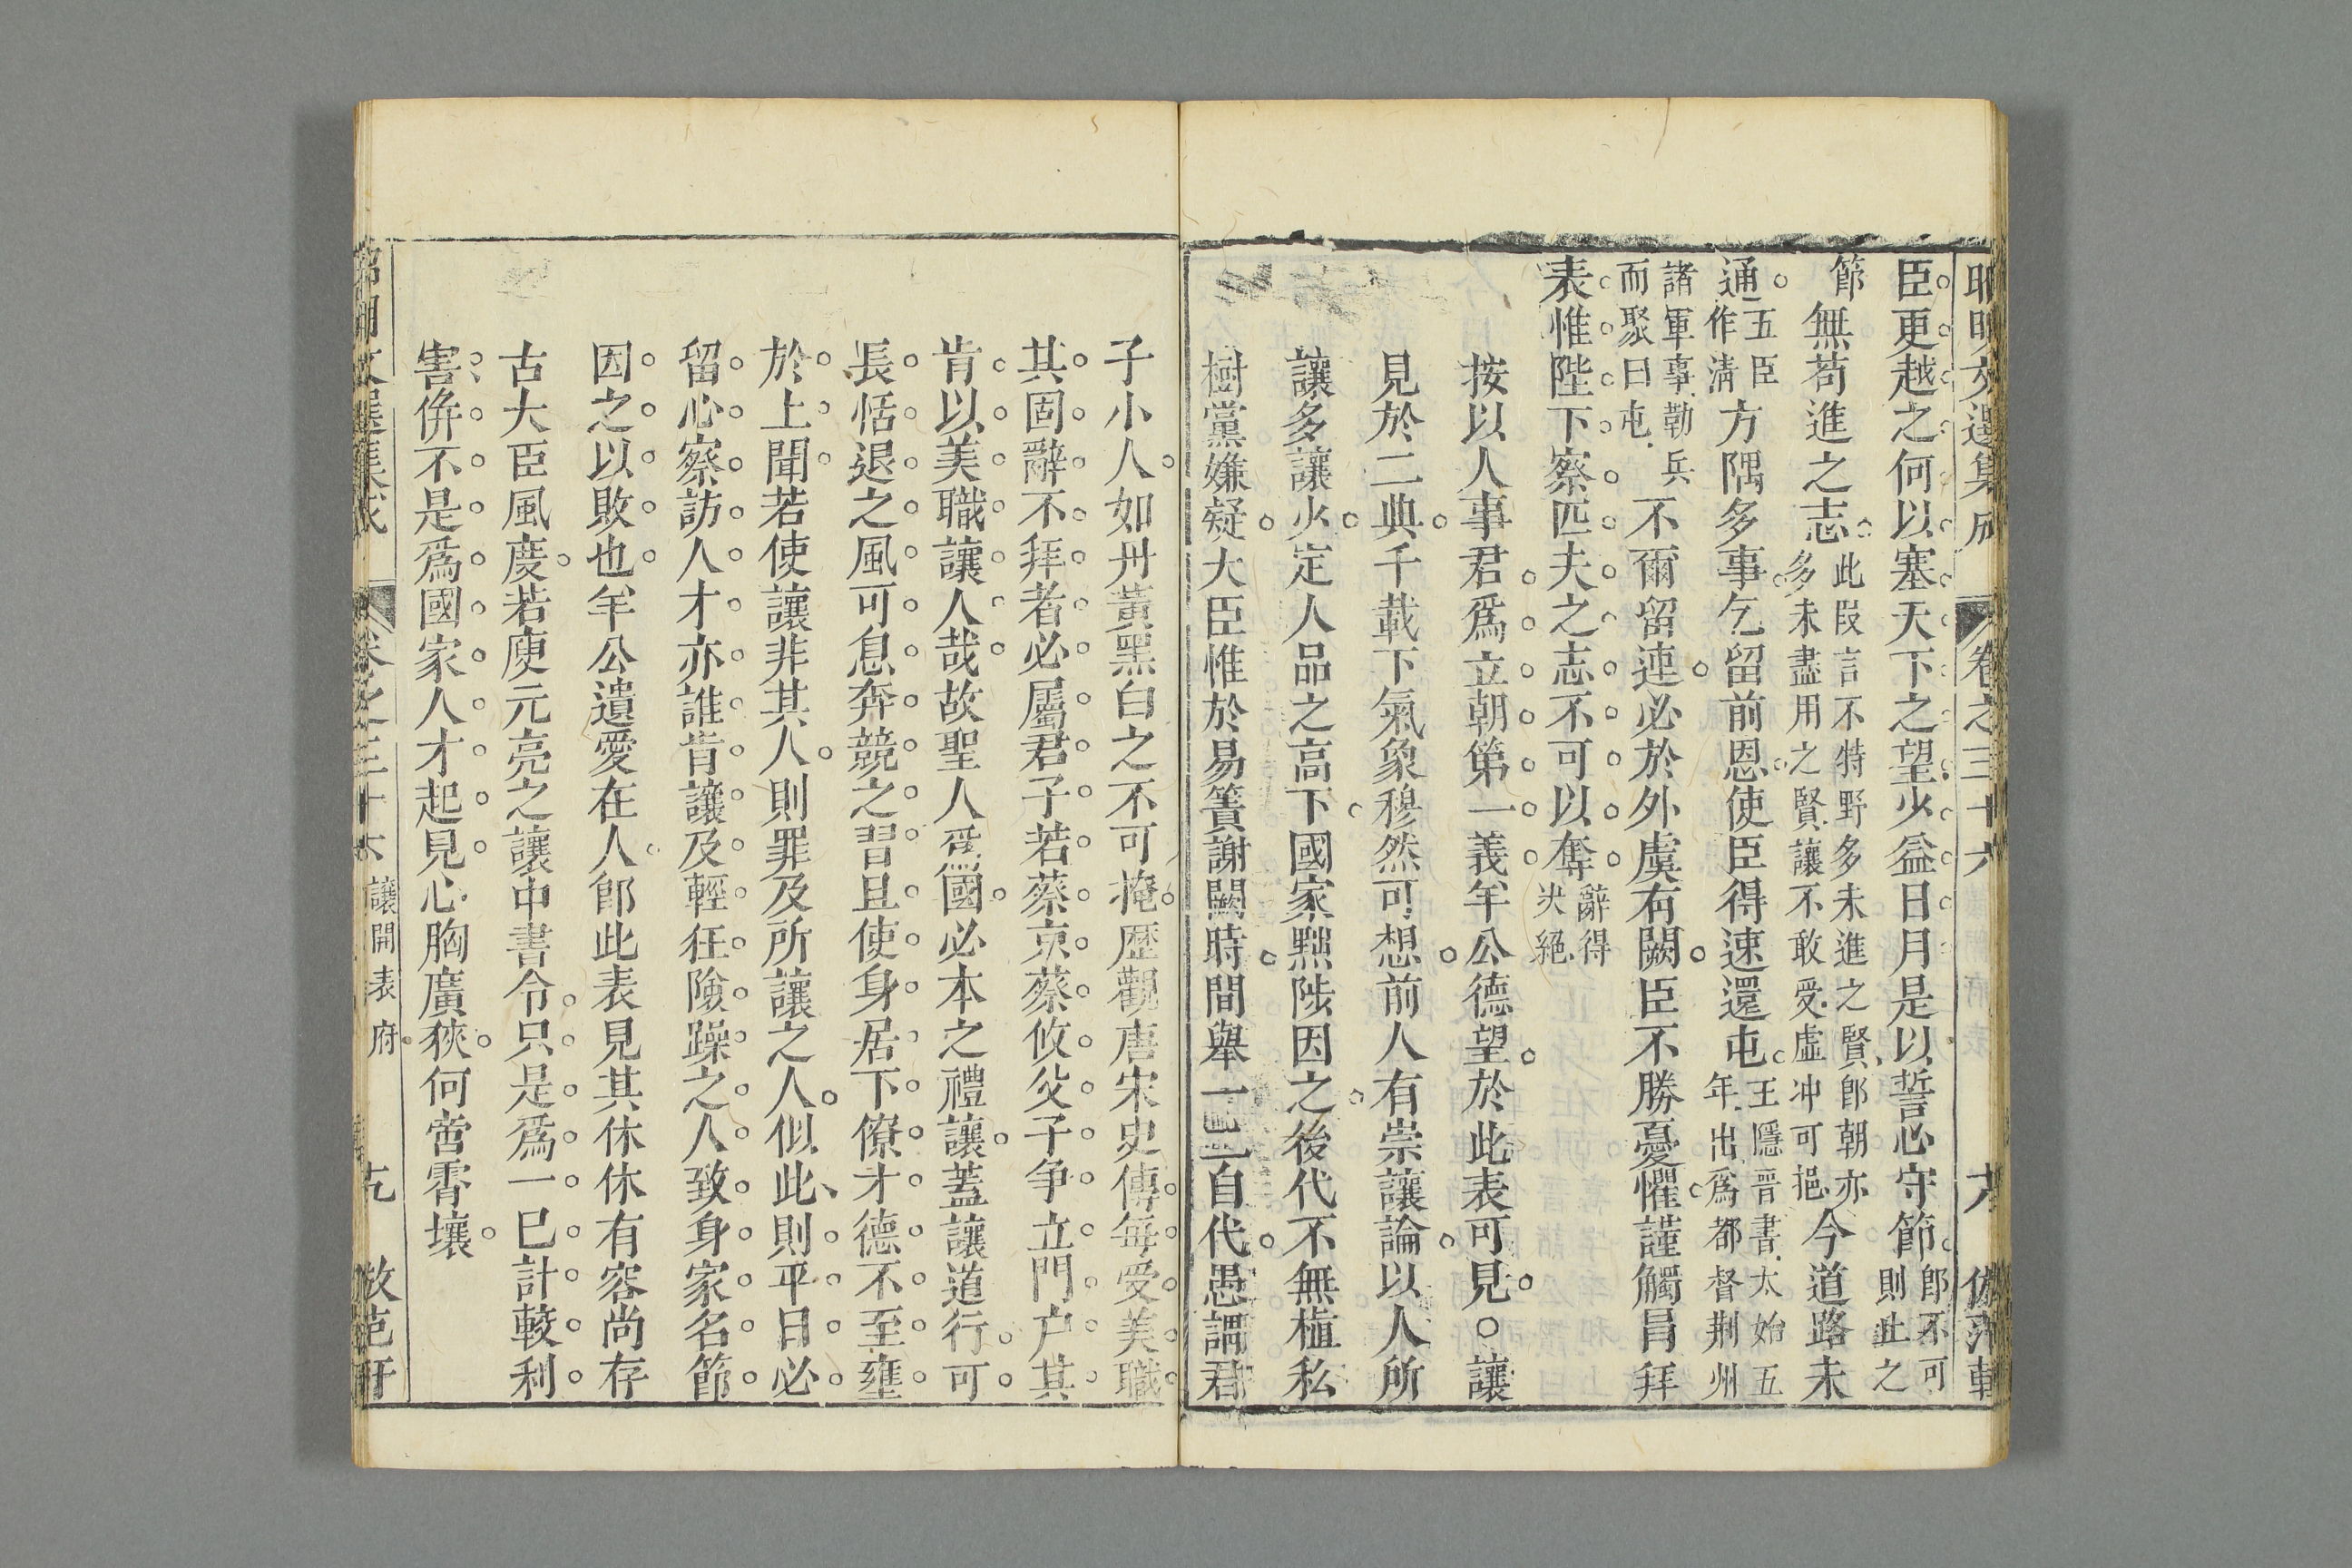 昭明文選集成 卷之三十六 六 倣范軒
臣更越之何以塞天下之望少益日月是以誓心守節
郎不可
則此之
節無苟進之志
此段言不特野多未進之賢郎朝亦
多未盡用之賢讓不敢受虛冲可挹
今道路未
通
五臣
作清
方隅多事乞留前恩使臣得速還屯
王隱晉書太始五
年出爲都督荆州
諸軍事勒兵
而聚曰屯
不爾留連必於外虞有闕臣不勝憂懼謹觸冒拜
表惟陛下察匹夫之志不可以奪
辭得
决絕
按以人事君爲立朝第一義羊公德望於此表可見○讓
見於二典千載下氣象穆然可想前人有崇讓論以人所
讓多讓少定人品之高下國家黜陟因之後代不無植私
樹黨嫌疑大臣惟於易簀謝闕時間舉一二自代愚謂君
子小人如丹黃黑白之不可掩歷觀唐宋史傳每受美職
其固辭不拜者必屬君子若蔡京蔡攸父子争立門户其
肯以美職讓人哉故聖人爲國必本之禮讓蓋讓道行可
長恬退之風可息奔競之習且使身居下僚才德不至壅
於上聞若使讓非其人則罪及所讓之人似此則平日必
留心察訪人才亦誰肯讓及輕狂險躁之人致身家名節
因之以敗也羊公遺愛在人郎此表見其休休有容尚存
古大臣風度若庾元亮之讓中書令只是爲一已計較利
害倂不是爲國家人才起見心胸廣狹何啻霄壤
昭明文選集成 卷之三十六 讓開府表 倣范軒